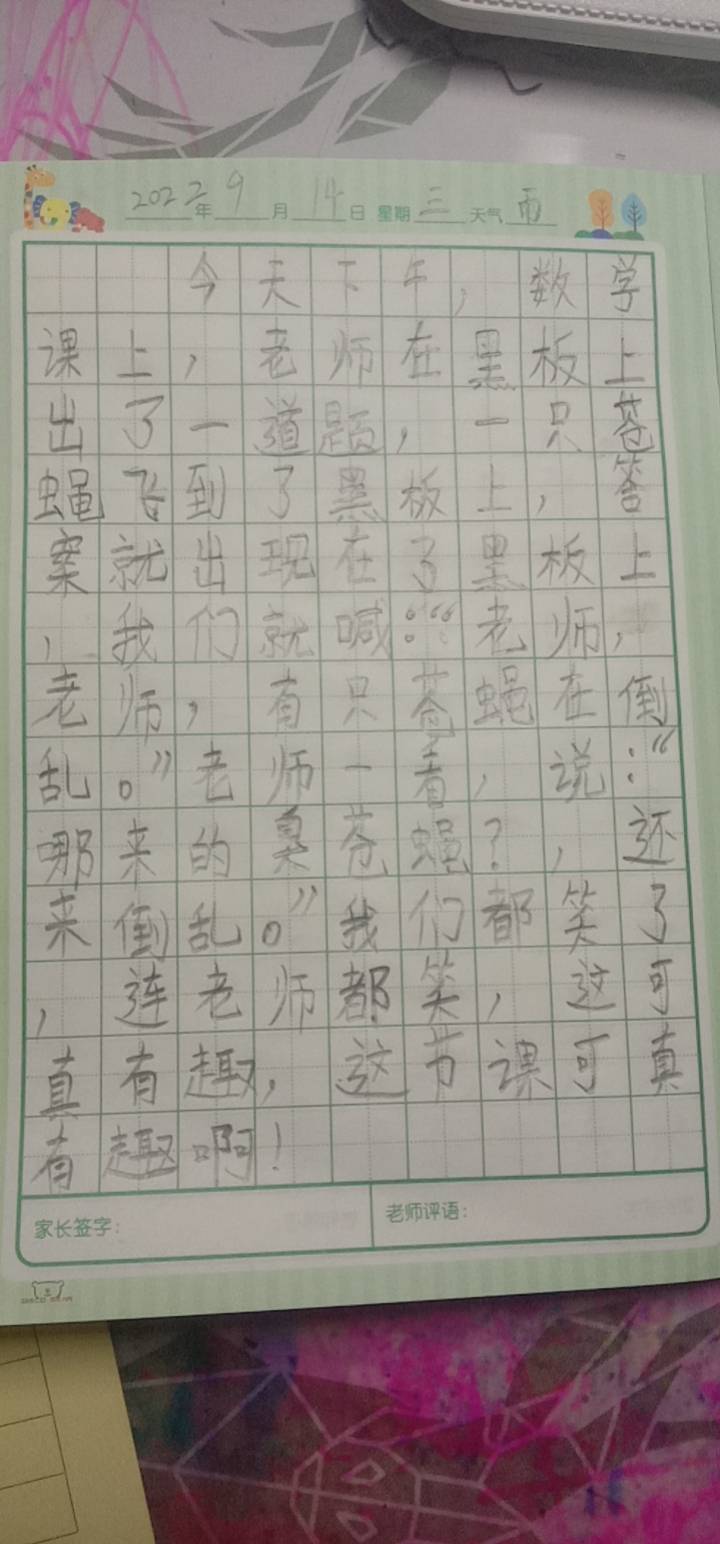 2022年9月14日 星期三 天气雨
今天下午，数学
课上，老师在黑板上
出了一道题，一只苍
蝇飞到了黑板上，答
案就出现在了黑板上
，我们就喊：“老师，
老师，有只苍蝇在倒
乱。”老师一看，说：“
哪来的臭苍蝇？，还
来倒乱。”我们都笑了
，连老师都笑，这可
真有趣，这节课可真
有趣啊！
家长签字：
老师评语：